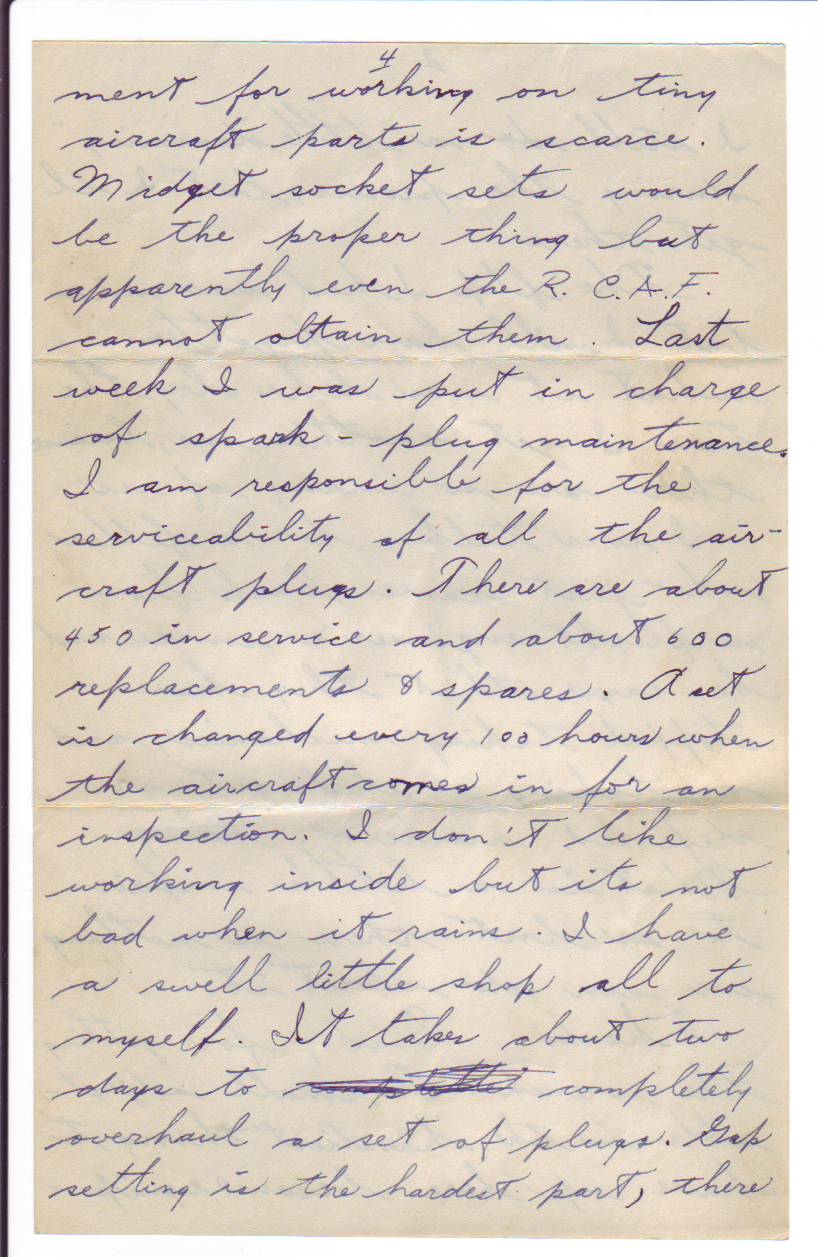 4
ment for working on tiny
aircraft parts is scarce.
Midget socket sets would
be the proper thing but
apparently even the R. C. A. F.
cannot obtain them. Last
week I was put in charge
of spark-plug maintenance.
I am responsible for the
serviceability of all the air-
craft plugs. There are about
450 in service and about 600
replacements & spares. A set
is changed every 100 hours when
the aircraft comes in for an
inspection. I don't like
working inside but its not
bad when it rains. I have
a swell little shop all to
myself. It takes about two
days to completely
overhaul a set of plugs. Gap
setting is the hardest part, there